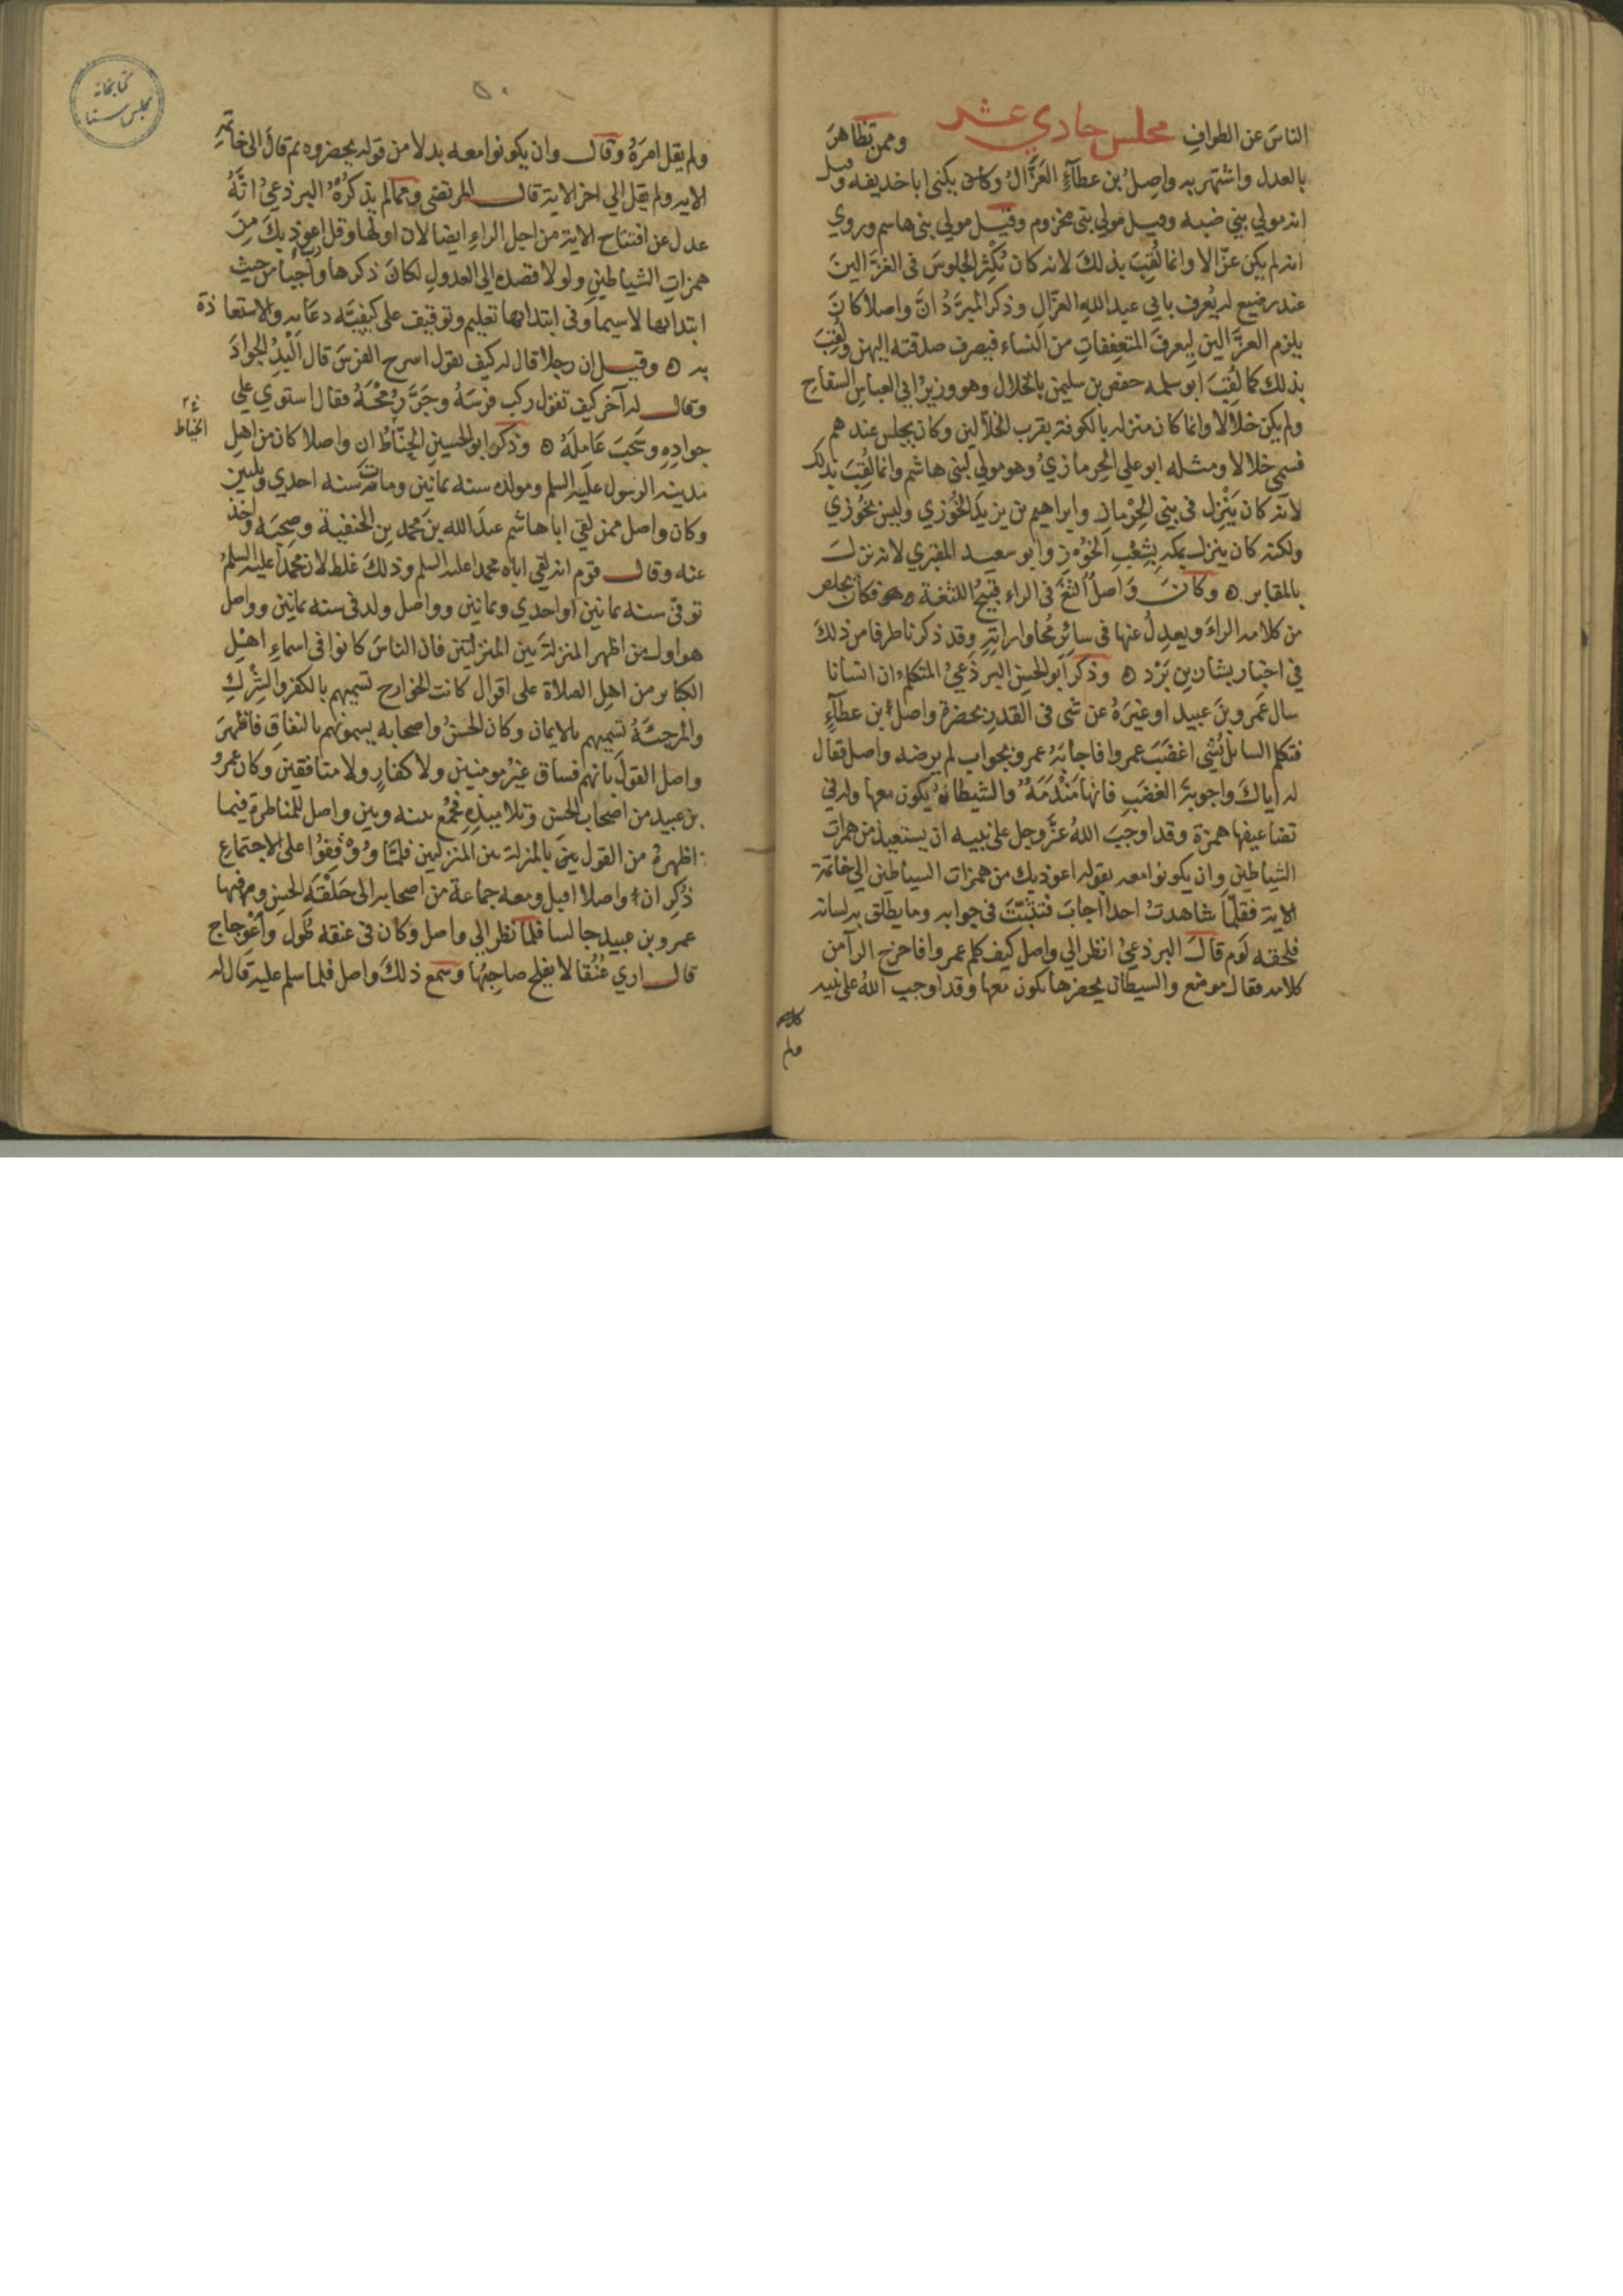 الناسَ عن الطوافِ مجلس حادي عشر وممن تظاهرَ
بالعدل واشتهر به واصِلُ بن عطآءٍ الغَزَّالُ وكان يكنى ابا حذيفه وقيل
انه مولي بني ضبه وقيل مولي بني مخزوم وقيل مولي بني هاسم وروي
انه لم يكن غزّالا وانما لُقِبَ بذلكَ لانه كان يُكْثِر الجلوسَ في الغزَّالينَ
عند رضيع له يُعرف بابي عبد اللهِ الغزّالِ وذكر المبرَّدُ انَّ واصلا كانَ
يلزم الغزَّالين ليعرفَ المتعففاتِ من النساء فيصرف صدقته اليهن ولُقِبَ
بذلك كما لُقِبَ ابو سلمه حفص بن سليمن بالخلال وهو وزيرُ ابي العباسِ السفاحِ
ولم يكن خلالا وانما كان منزله بالكوفة بقرب الخلّالين وكان يجلس عندهم
فسمي خلالا ومثله ابو علي الحِرمازيُ وهو مولي لبني هاشم وانما لُقِبَ بذلك
لانه كان يَنْزِل في بني الحِرْمازِ وابراهيم بن يزيد الخُوزي وليس بخُوزي
ولكنه كان ينزل بمكه بِشِعْبِ الخُوْزِ وابو سعيد المقبري لانه نزلَ
بالمقابر ه وكانَ واصلٌ الثغَ في الراء قبيحُ اللثغة فكان يخلص
من كلامه الراءَ ويعدِلُ عنها في سائر مُحاوراتِهِ وقد ذكرنا طرفا من ذلكَ
في اخبار بشار بن بَرْد ه وذكر ابو الحسن البرذَعيُ المتكلم ان انسانا
سال عَمرو بنَ عبيد اوغيَرهُ عن شى في القدرِ بحضرة واصل بن عطآءٍ
فتكلم السايل بشئي اغضَبَ عمروا فاجابَهُ عمرو بجواب لم يرضه واصل فقال
له اياكَ واجوبةَ الغضَبِ فانها مَنْدَمَةٌ والشيطانُ يكون معها وله في
تضاعيفها همزة وقد اوجبَ اللهُ عزَّ وجل على نبيه ان يستعيذ من همزات
الشياطين وان يكونوا معه بقوله اعوذ بك من همزات السياطين الي خاتمة
الاية فقلّما شاهدتُ احدا اجابَ فتثبَّتَ في جوابه وما يطلق به لسانه
فلحقه لَوم قالَ البرذعيُ انظر الي واصل كيف كلم عمروا فاخرج الرآ من
كلامه فقال موضع والسيطان يحضرها يكون معها وقد اوجب اللهُ على نبيه
ولم
ولم يقل امرَهُ وقال وان يكونوا معه بدلا من قوله يحضروه ثم قالَ الى خاتمةِ
الايه ولم يقل الي اخر الاية قال المرتضي ومما لم يذكرُهُ البرذعيُ انَّهُ
عدل عن افتتاح الاية من اجل الراءِ ايضا لان اولها وقل رب اعوذ بكَ مِنَ
همزاتِ الشياطينِ ولولا قصده الى العدولِ لكانَ ذكرها واجبا من حيث
ابتدابها لاسيما وفي ابتدابها تعليم وتوقيف على كيفيَّه دعَايه والاستعاذة
به ه وقيل ان رجلا قال له كيف تقول اسرج الفرسَ قال اَلْبِدِ الجوادَ
وقال له آخر كيف تقول ركب فرسَهُ وجَرَّ رُمْحَهُ فقال استوي علي
جوادِهِ وسَحَبَ عَامِلَهُ ه وذكر ابو الحسينِ الخيّاطُ ان واصلا كان من اهل
الخياط
مدينه الرسول عليه السلم ومولده سنه ثمانين ومات سنه احدي وثلثين
وكان واصل ممن لقي ابا هاشم عبدَ الله بنَ محمد بنِ الحنفية وصحِبَه واخذ
عنه وقال قوم انه لقي اباه محمدا عليه السلم وذلكَ غلط لان محمدا عليه السلمُ
توفى سنه ثمانين او احدي وثمانين وواصل ولد في سنه ثمانين وواصل
هو اول من اظهر المنزلةَ بين المنزلَتين فان الناسَ كانوا في اسماءِ اهْلِ
الكبايرِ من اهلِ الصلاة على اقوال كانت الخوارج تسميهم بالكفر والشِرْكِ
والمرجِئةُ تسميهم بالايمان وكان الحسنُ واصحابه يسمونهم بالنفاقِ فاظهرَ
واصل القولَ بانهم فساق غيرُ مومنين ولا كفارٍ ولا منافقين وكان عمرُو
بن عبيد من اصحاب الحسنِ وتلاميذِهِ فجُمعَ بينه وبين واصل للمناظرة فيما
اظهرهُ من القول بالمنزلة بين المنزلتين فلمَّا وُقِفُوا على الاجتماعِ
ذُكِر ان واصلا اقبل ومعه جماعة من اصحابه الى حَلَقَةِ الحسنِ وفيها
عمرو بن عبيد جالسا فلما نظر الي واصل وكان في عنقه طُول واعْوِجاج
قال اري عُنُقا لا يفلح صاحبُها وسَمع ذلكَ واصل فلما سلم عليه قال له
كتابخانه
مجلس سنا